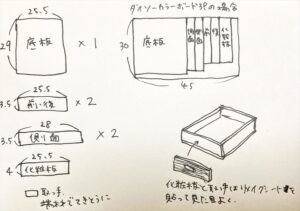 25.5
29
底板
×1
25.5
3.5
前・後
×2
28
3.5
側面
×2
25.5
4
化粧板
取っ手
端材でてきとうに
ダイソーカラーボード3Pの場合
30
底板
側面
側面
前
後
化粧板
45
化粧板と取っ手はリメイクシート等を
貼って見た目よく。